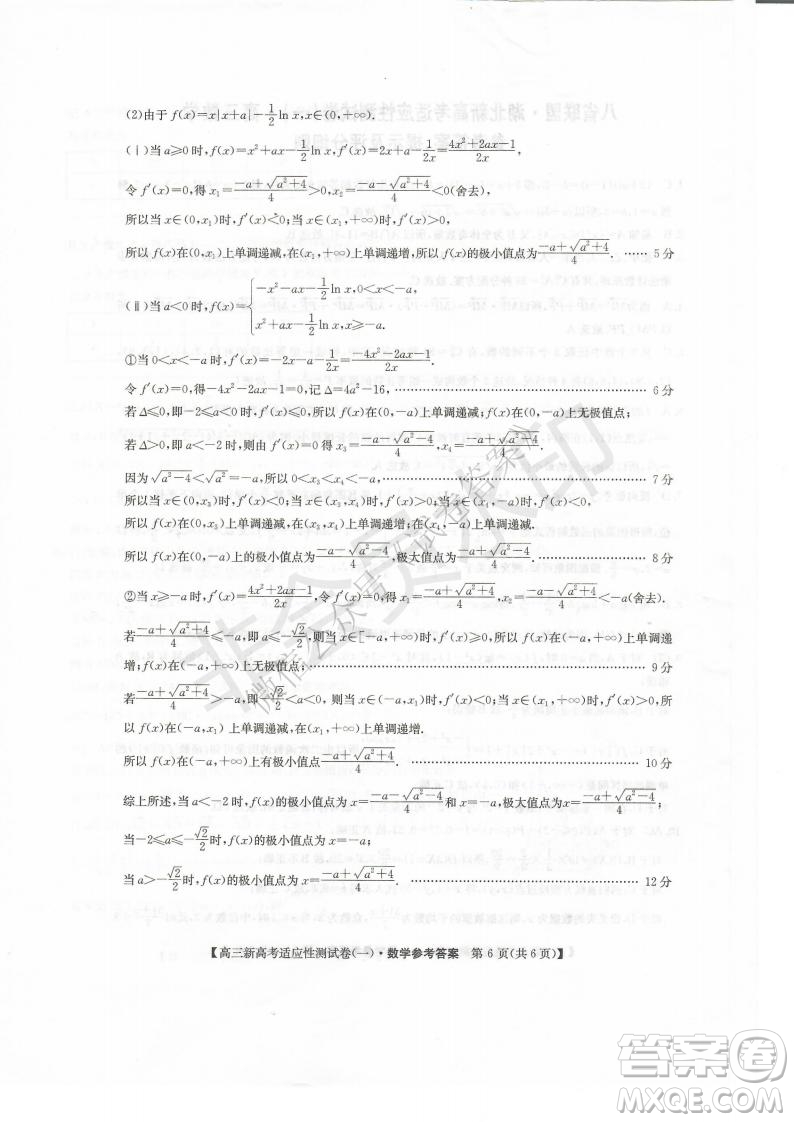 (2)由于 f(x)=x|x+a|-1/2 ln x,
(ⅰ)当 a≥0 时,f(x)=x²+ax-1/2 ln x,f′(x)=2x+a-1/2x=(4x²+2ax-1)/2x.
令 f′(x)=0,得 x₁=(-a+√(a²+4))/4>0,x₂=(-a-√(a²+4))/4<0(舍去),
所以当 x∈(0,x₁)时,f′(x)<0;当 x∈(x₁,+∞)时,f′(x)>0,
所以 f(x)在(0,x₁)上单调递减,在(x₁,+∞)上单调递增,所以 f(x)的极小值点为(-a+√(a²+4))/4. …… 5 分
(ⅱ)当 a<0 时,f(x)={-x²-ax-1/2 ln x,0<x<-a,
x²+ax-1/2 ln x,x≥-a.
①当 0<x<-a 时,f′(x)=-2x-a-1/2x=(-4x²-2ax-1)/2x.
令 f′(x)=0,得-4x²-2ax-1=0,记 Δ=4a²-16, …… 6 分
若 Δ≤0,即-2≤a<0 时,f′(x)≤0,所以 f(x)在(0,-a)上单调递减,f(x)在(0,-a)上无极值点;
若 Δ>0,即 a<-2 时,则由 f′(x)=0 得 x₃=(-a-√(a²-4))/4,x₄=(-a+√(a²-4))/4.
因为√(a²-4)<√a²=-a,所以 0<x₃<x₄<-a, …… 7 分
所以当 x∈(0,x₃)时,f′(x)<0;当 x∈(x₃,x₄)时,f′(x)>0;当 x∈(x₄,-a)时,f′(x)<0,
所以 f(x)在(0,x₃)上单调递减,在(x₃,x₄)上单调递增,在(x₄,-a)上单调递减.
所以 f(x)在(0,-a)上的极小值点为(-a-√(a²-4))/4,极大值点为(-a+√(a²-4))/4. …… 8 分
②当 x≥-a 时,f′(x)=(4x²+2ax-1)/2x,令 f′(x)=0,得 x₁=(-a+√(a²+4))/4,x₂=(-a-√(a²+4))/4<-a(舍去).
若(-a+√(a²+4))/4≤-a,即 a≤-√2/2,则当 x∈[-a,+∞)时,f′(x)≥0,所以 f(x)在(-a,+∞)上单调递
增;f(x)在(-a,+∞)上无极值点; …… 9 分
若(-a+√(a²+4))/4>-a,即-√2/2<a<0,则当 x∈(-a,x₁)时,f′(x)<0;当 x∈(x₁,+∞)时,f′(x)>0,所
以 f(x)在(-a,x₁)上单调递减,在(x₁,+∞)上单调递增.
所以 f(x)在(-a,+∞)上有极小值点(-a+√(a²+4))/4. …… 10 分
综上所述,当 a<-2 时,f(x)的极小值点为 x=(-a-√(a²-4))/4和 x=-a,极大值点为 x=(-a+√(a²-4))/4;
当-2≤a≤-√2/2时,f(x)的极小值点为 x=-a;
当 a>-√2/2时,f(x)的极小值点为 x=(-a+√(a²+4))/4. …… 12 分
【高三新高考适应性测试卷(一)·数学参考答案 第 6 页(共 6 页)】
非会员水印
答案圈
MXQE.COM